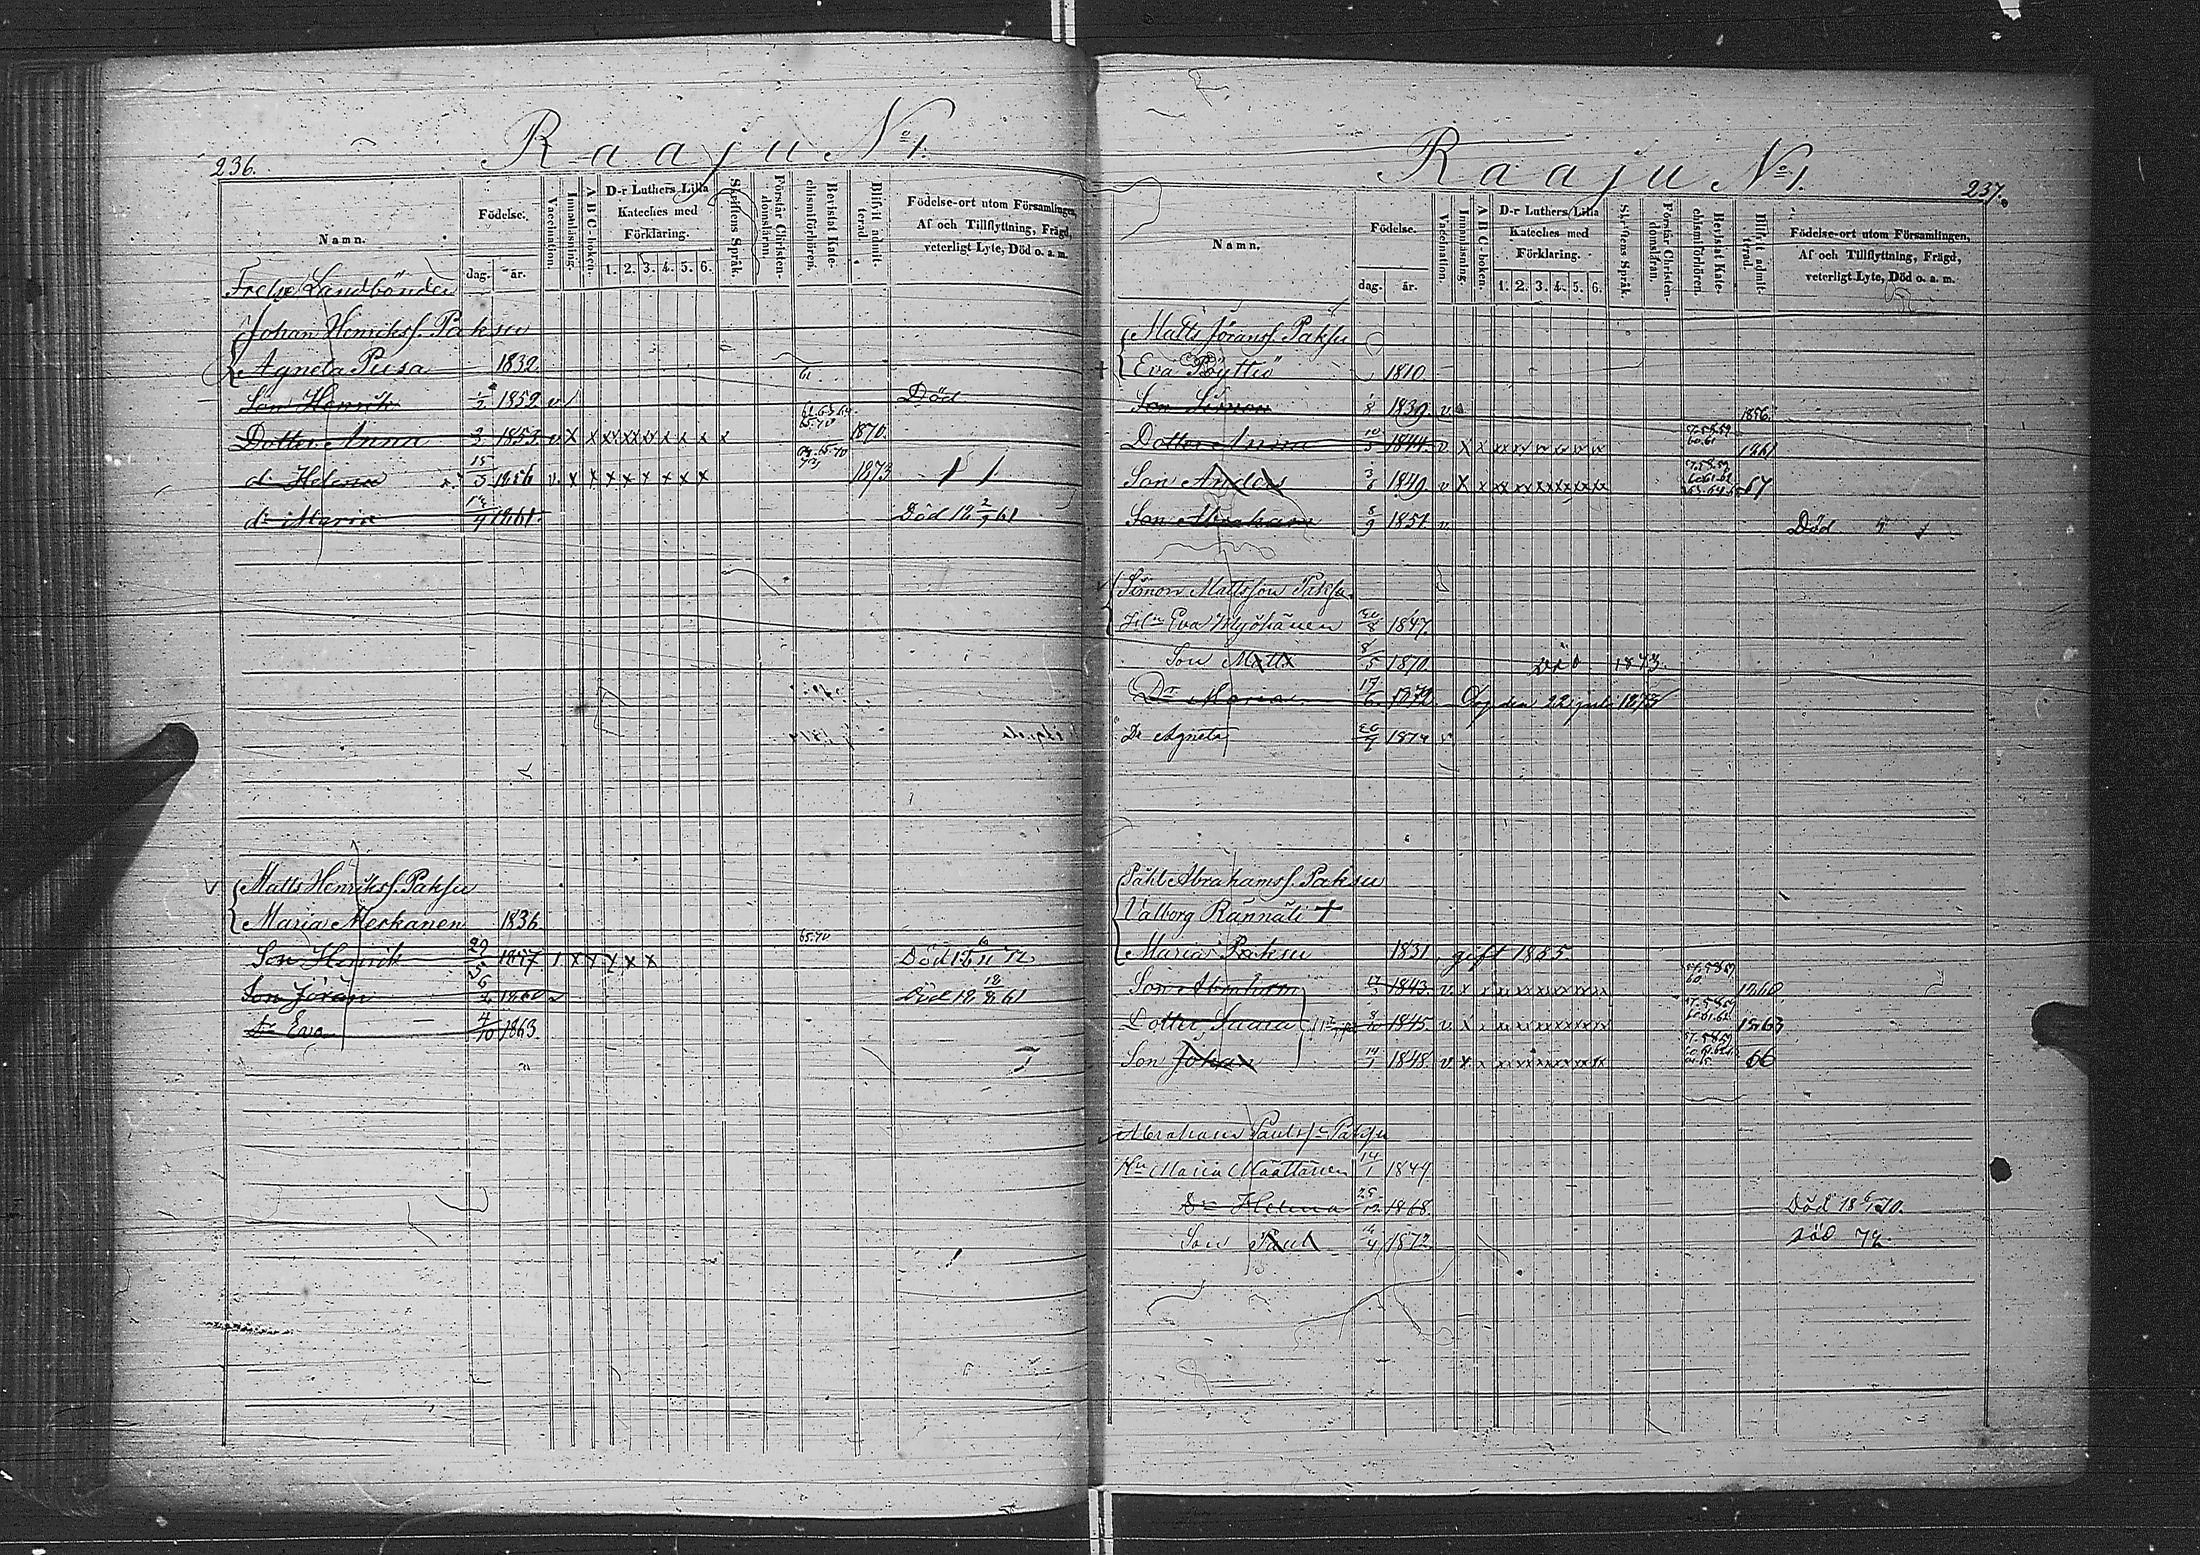 236.
Raaju No 1.
Namn.
Födelse.
dag.
år.
Vaccination.
Innanläsning.
A B C-boken.
D-r Luthers Lilla
Kateches med
Förklaring.
1. 2. 3. 4. 5. 6.
Skriftens Språk.
Förstår Christen-
domsläran.
Bevistat Kate-
chismiförhören.
Blifvit admit-
terad.
Födelse-ort utom Församlingen,
Af och Tillflyttning, Frägd,
veterligt Lyte, Död o. a. m.
Landbönder
Johan Henrikss. Paksu
Agneta Pusa 1832
Son Henrik 1852 v Död
Dotter Anna 1853 v x x x x x x x x x x 1870
d:r Helena 15/3 1856 v x x x x x x x x 1873
d:r Maria 1861. Död 18 2/9 61
Matts Henrikss. Paksu
Maria Meskanen 1836
Son Henrik 1857 65.70
Son Jöran 1860 v Död 18 61
Dr Eva 4/10 1863.
Raaju No 1.
237.
Namn.
Födelse.
dag.
år.
Vaccination.
Innanläsning.
A B C-boken.
D-r Luthers Lilla
Kateches med
Förklaring.
1. 2. 3. 4. 5. 6.
Skriftens Språk.
Förstår Christen-
domsläran.
Bevistat Kate-
chismiförhören.
Blifvit admit-
terad.
Födelse-ort utom Församlingen,
Af och Tillflyttning, Frägd,
veterligt Lyte, Död o. a. m.
Matts Jöranss. Paksu
Eva Pöyttiö 1810.
Son Simon 1839 v 1856.
Dotter Anna 10/3 1844 v x 57.58.59 60.61 1861
Son Anders 3/6 1849 v x 67
Son Abraham 8/9 1851 v Död
Simon Mattsson Paksu
Eva 1847.
Son Matts 8/5 1870 Död 1873.
Dr Maria 17/6 1872 Dog den 22 juli 1872
Dr Agneta 1874 v
Påhl Abrahamss. Paksu
Valborg Rännäli †
Maria Paksu 1831 gift 1865
Son Abraham 1843. v x 57.58.59 60. 1860
Dotter Saara 8/10 1845 v x 1863
Son Johan 14/1 1848. v x 66
Abraham Paulss:n Paksu
Hu Maria Määttänen 14/1 1844
Dr Helena 1868. Död 18 70.
Son Paul 1872 död 72.